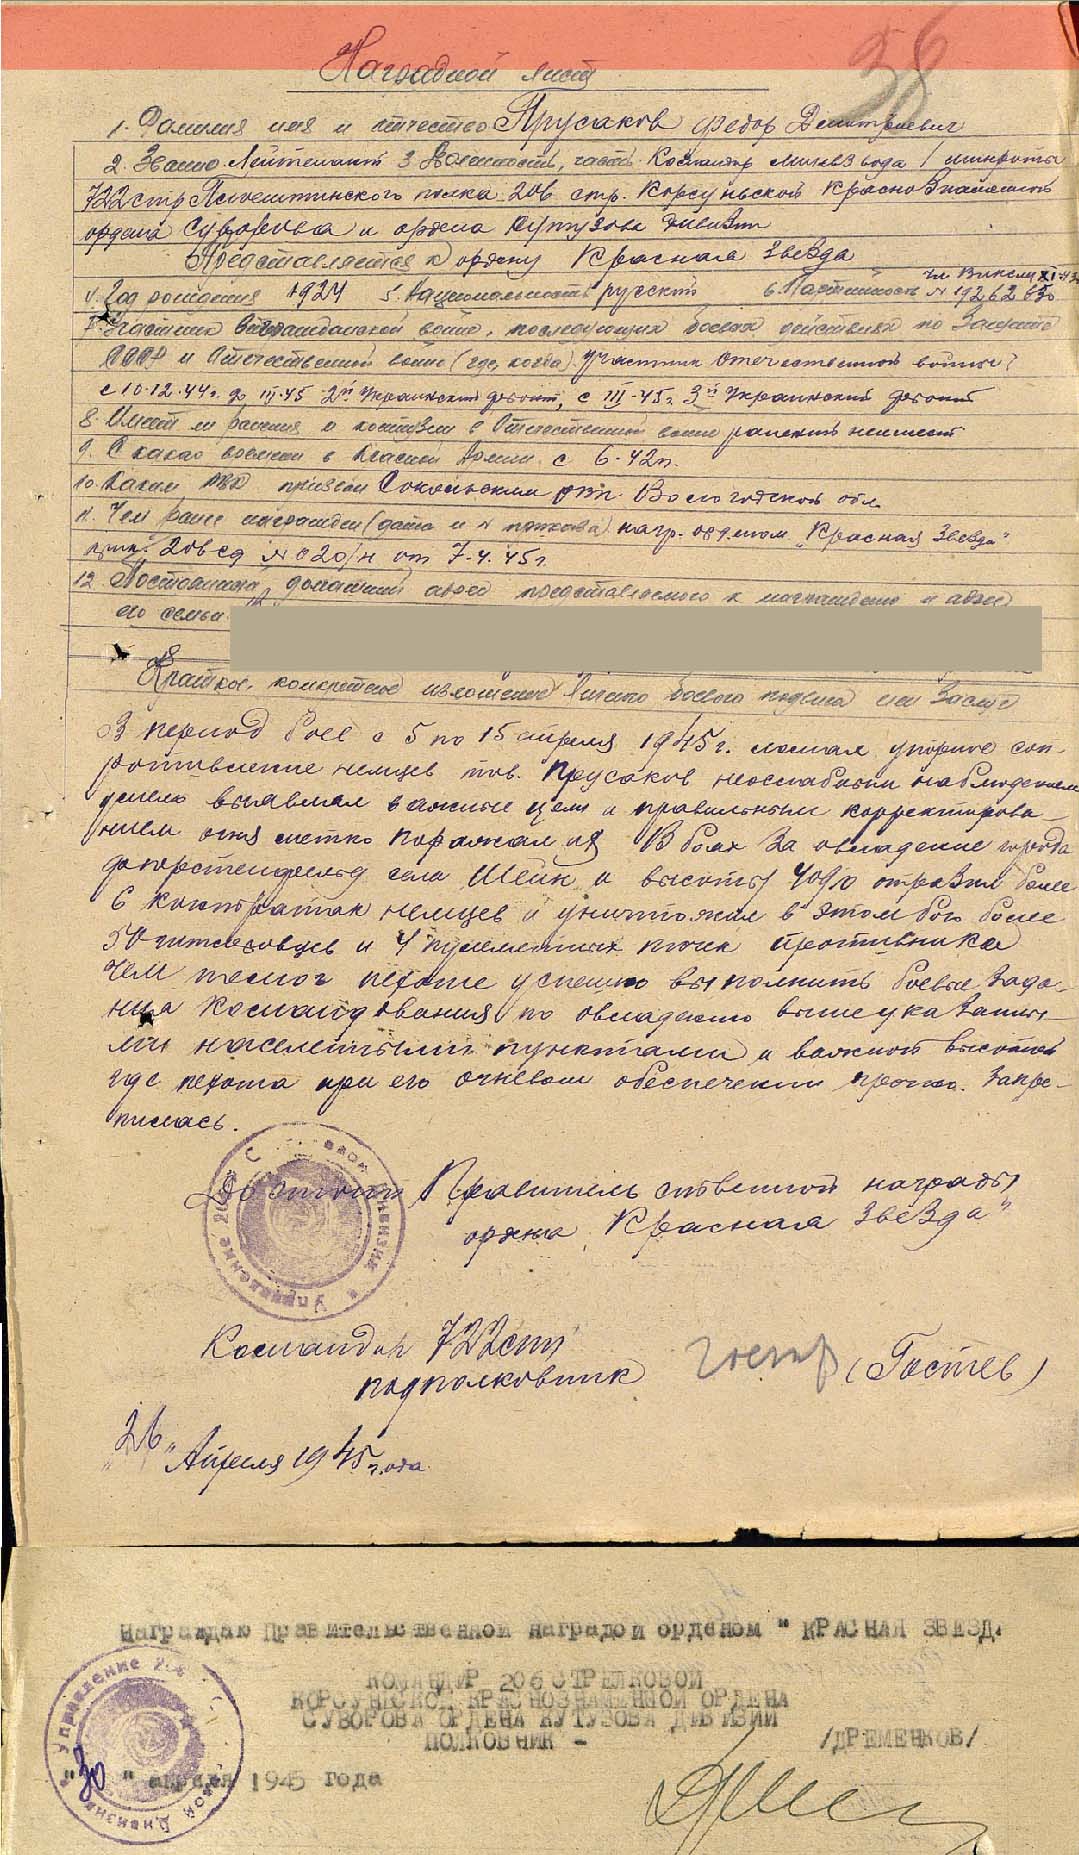 38
Наградной лист
1. Фамилия имя и отчество Прусаков Федор Дмитриевич
2. Звание Лейтенант 3. Должность, часть Командир мин. взвода 1 минроты
722 стр Плоештинского полка 206 стр. Корсуньской Краснознаменной
ордена Суворова и ордена Кутузова дивизии
Представляется к ордену Красная Звезда
чл. ВЛКСМ
4. Год рождения 1924 5. Национальность русский 6. Партийность №
7. Участник гражданской войны, последующих боевых действиях по защите
СССР и Отечественной войне (где, когда) участник отечественной войны
с 10.12.44г. до III-45 2й Украинский фронт, с III-45г 3й Украинский фронт
8. Имеет ли ранения и контузии в Отечественной войне ранений не имеет
9. С какого времени в Красной Армии с 6-42г.
10. Каким РВК призван Сокольским рвк Вологодской обл.
11. Чем ранее награжден (дата и № приказа) нагр. орденом „Красная Звезда"
прик. 206 сд № 020/н от 7.4.45г.
12. Постоянный домашний адрес представляемого к награждению и адрес
его семьи
Краткое, конкретное изложение личного боевого подвига или заслуг
В период боев с 5 по 15 апреля 1945г. ломая упорное соп-
ротивление немцев тов. Прусаков неослабным наблюдением
умело выявлял важные цели и правильным корректирова-
нием огня метко поражал их. В боях за овладение города
фюрстенфельд села Штейн и высоты отразил более
6 контратак немцев и уничтожил в этом бою более
50 гитлеровцев и 4 пулеметных точек противника
чем помог пехоте успешно выполнить боевые зада-
ния командования по овладению вышеуказанны-
ми населенными пунктами и важной высотой
где пехота при его огневом обеспечении прочно закре-
пилась.
Достоин Правительственной награды
ордена „Красная Звезда"
Командир 722 сп
подполковник (Гостев)
„26" Апреля 1945 года
Награждаю Правительственной наградой орденом " КРАСНАЯ ЗВЕЗД
КОМАНДИР 206 СТРЕЛКОВОЙ
КОРСУНЬСКОЙ КРАСНОЗНАМЕННОЙ ОРДЕНА
СУВОРОВА ОРДЕНА КУТУЗОВА ДИВИЗИИ
ПОЛКОВНИК - /ДРЕМЕНКОВ/
" 30 " апреля 1945 года